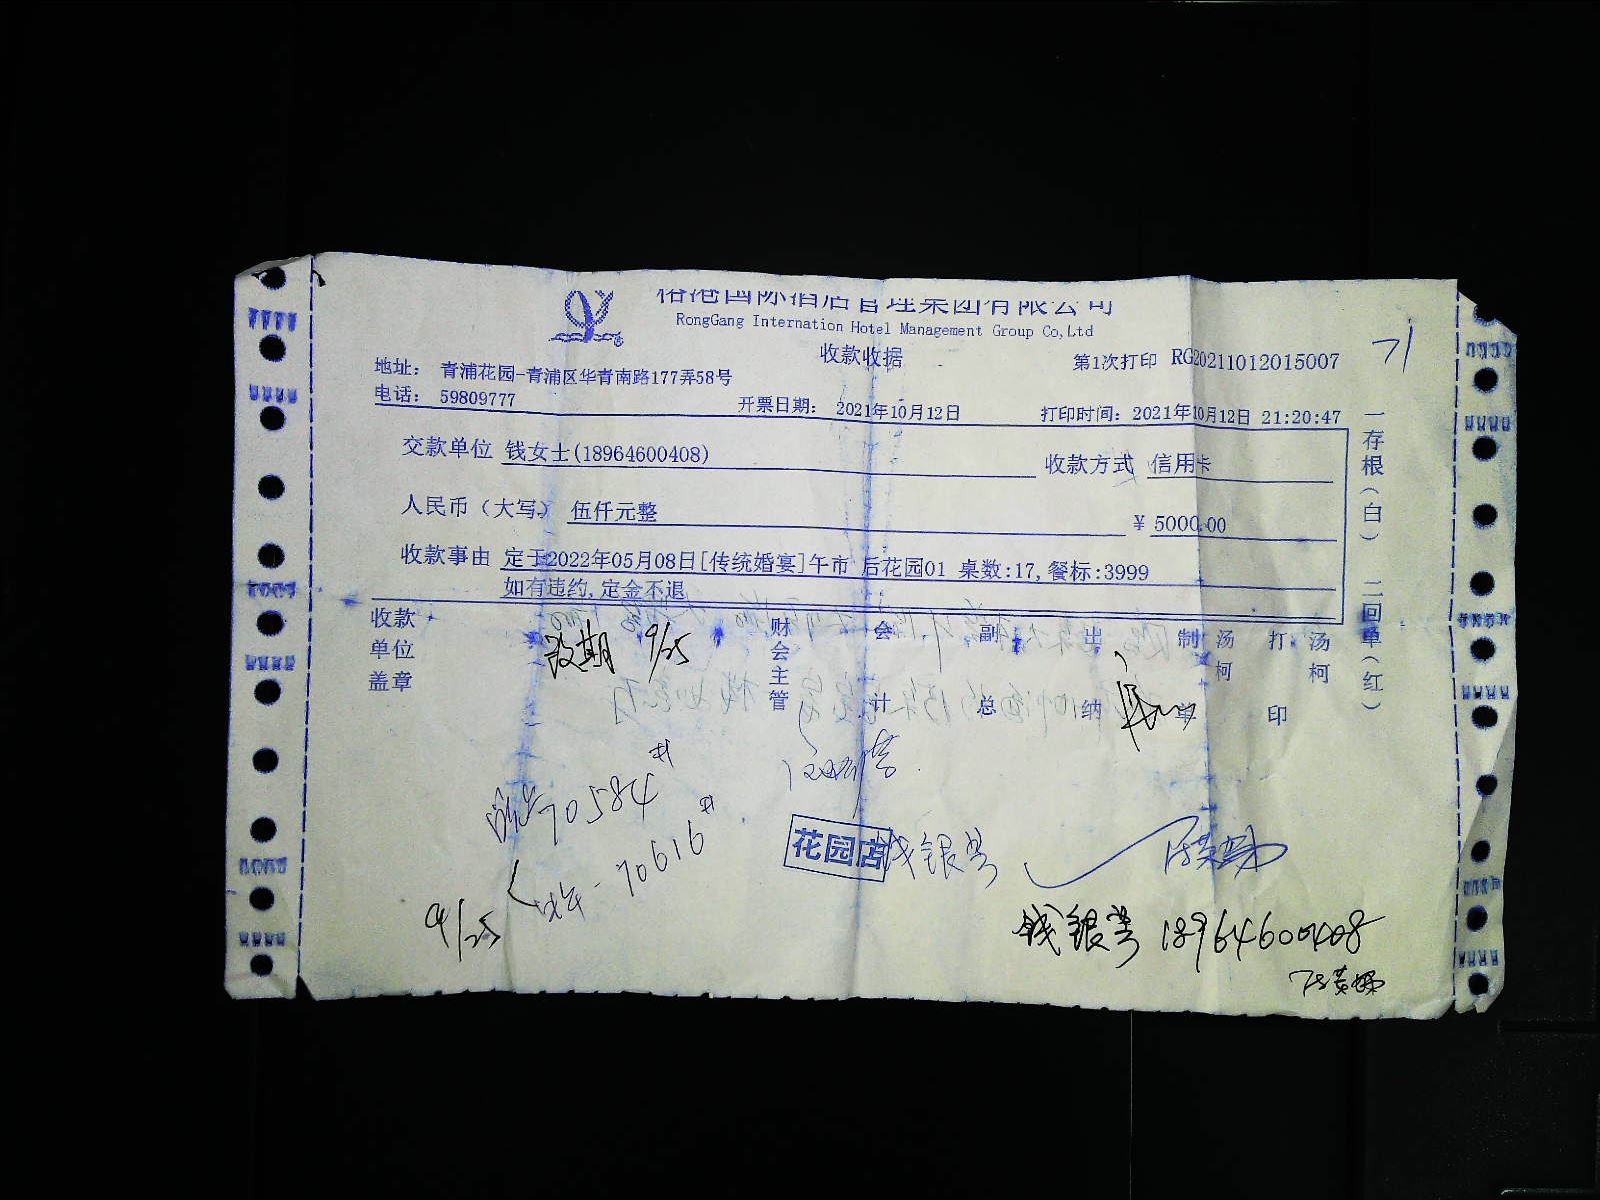 榕港国际酒店管理集团有限公司
RongGang Internation Hotel Management Group Co,Ltd
收款收据
第1次打印 RG20211012015007
71
地址： 青浦花园-青浦区华青南路177弄58号
电话： 59809777
开票日期： 2021年10月12日
打印时间：2021年10月12日 21:20:47
交款单位 钱女士(18964600408)
收款方式 信用卡
人民币（大写） 伍仟元整
¥ 5000.00
收款事由 定于2022年05月08日[传统婚宴]午市 后花园01 桌数:17,餐标:3999
如有违约,定金不退
一存根（白） 二回单（红）
收款单位盖章
财会主管
会计
副总
出纳
制单
汤柯
打印
汤柯
改期 9/25
70584#
70616#
花园店
钱银芳
9/25
钱银芳 18964600408